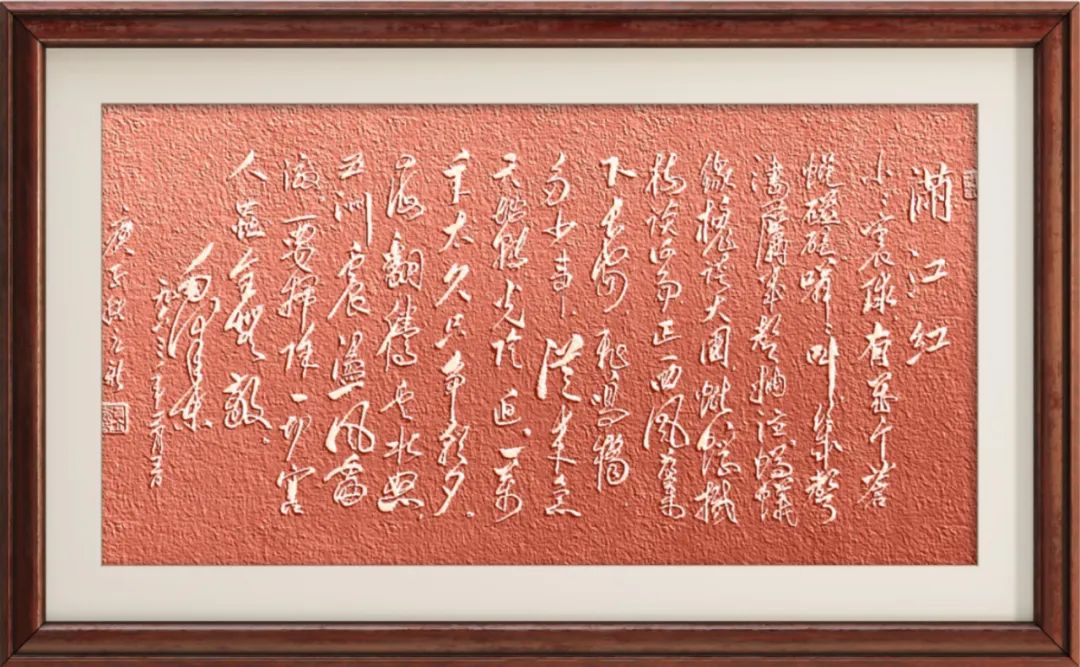 满江红
小小寰球有幾个苍
蝇碰壁嗡嗡叫几声
凄厉几声抽泣蚂蚁
缘槐夸大国蚍蜉撼
树谈何易正西风落葉
下长安飞鸣镝
多少事从来急
天地转光阴迫一万
年太久只争朝夕
四海翻腾云水怒
五洲震荡风雷
激要扫除一切害
人虫全无敌
毛泽东
一九六三年一月九日